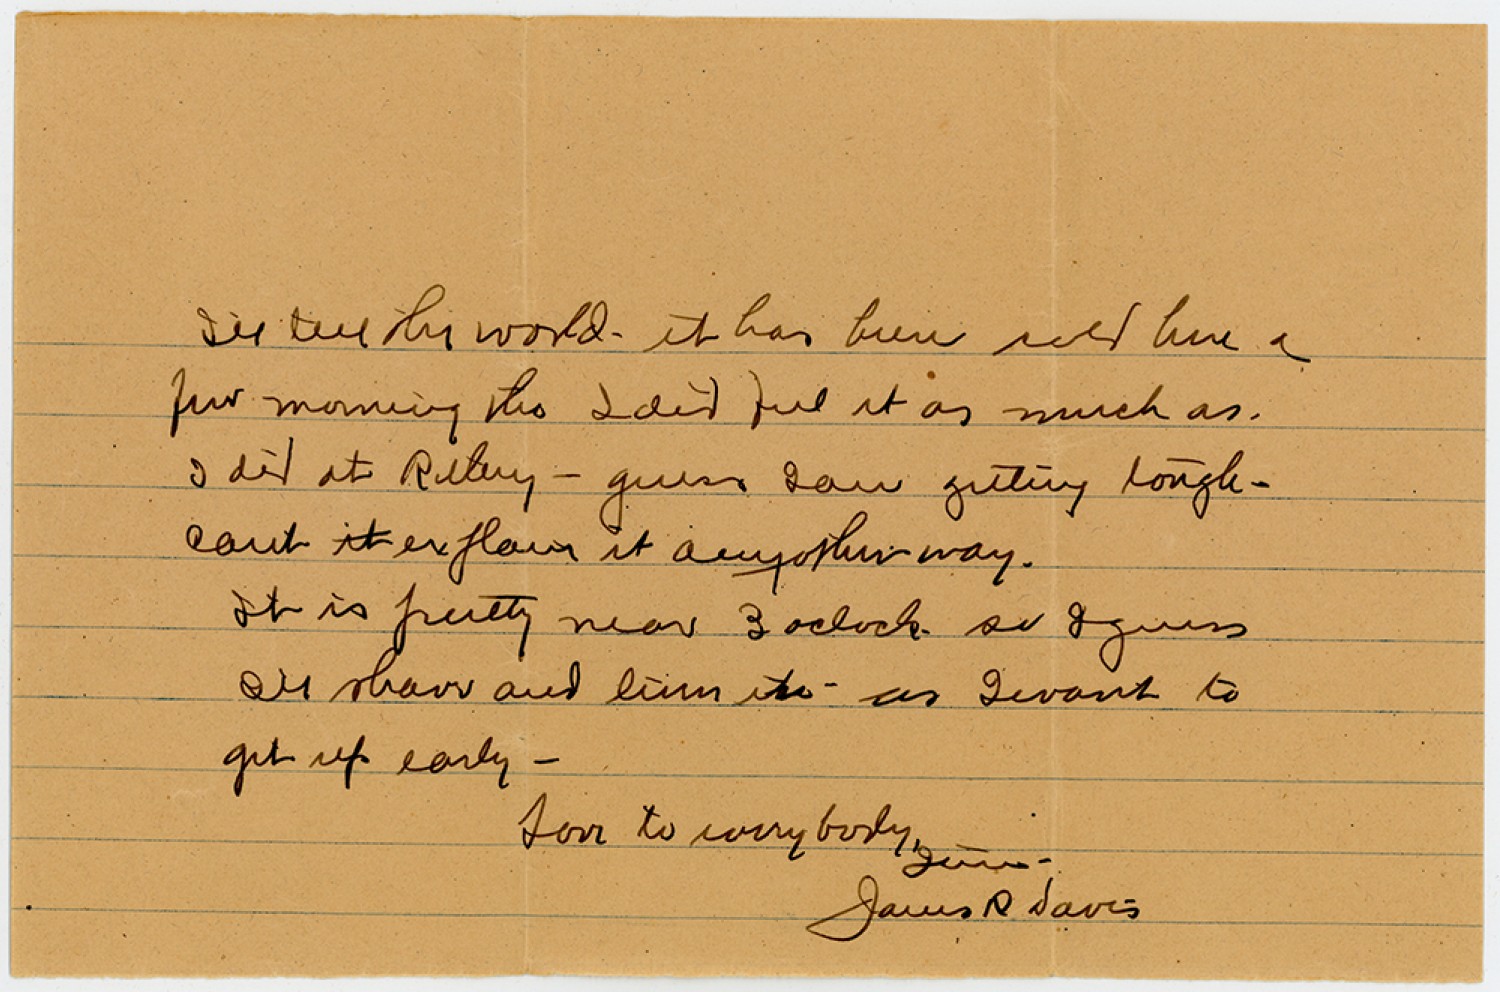 I'll tell the world - it has been cold here a
few morning tho I did feel it as much as.
I did at Rilery - guess I am getting tough -
cant it explain it anyother way.
It is pretty near 3 oclock. so I guess
I'll shave and turn in - as I want to
get up early -
Love to everybody,
Jim -
James R Davis